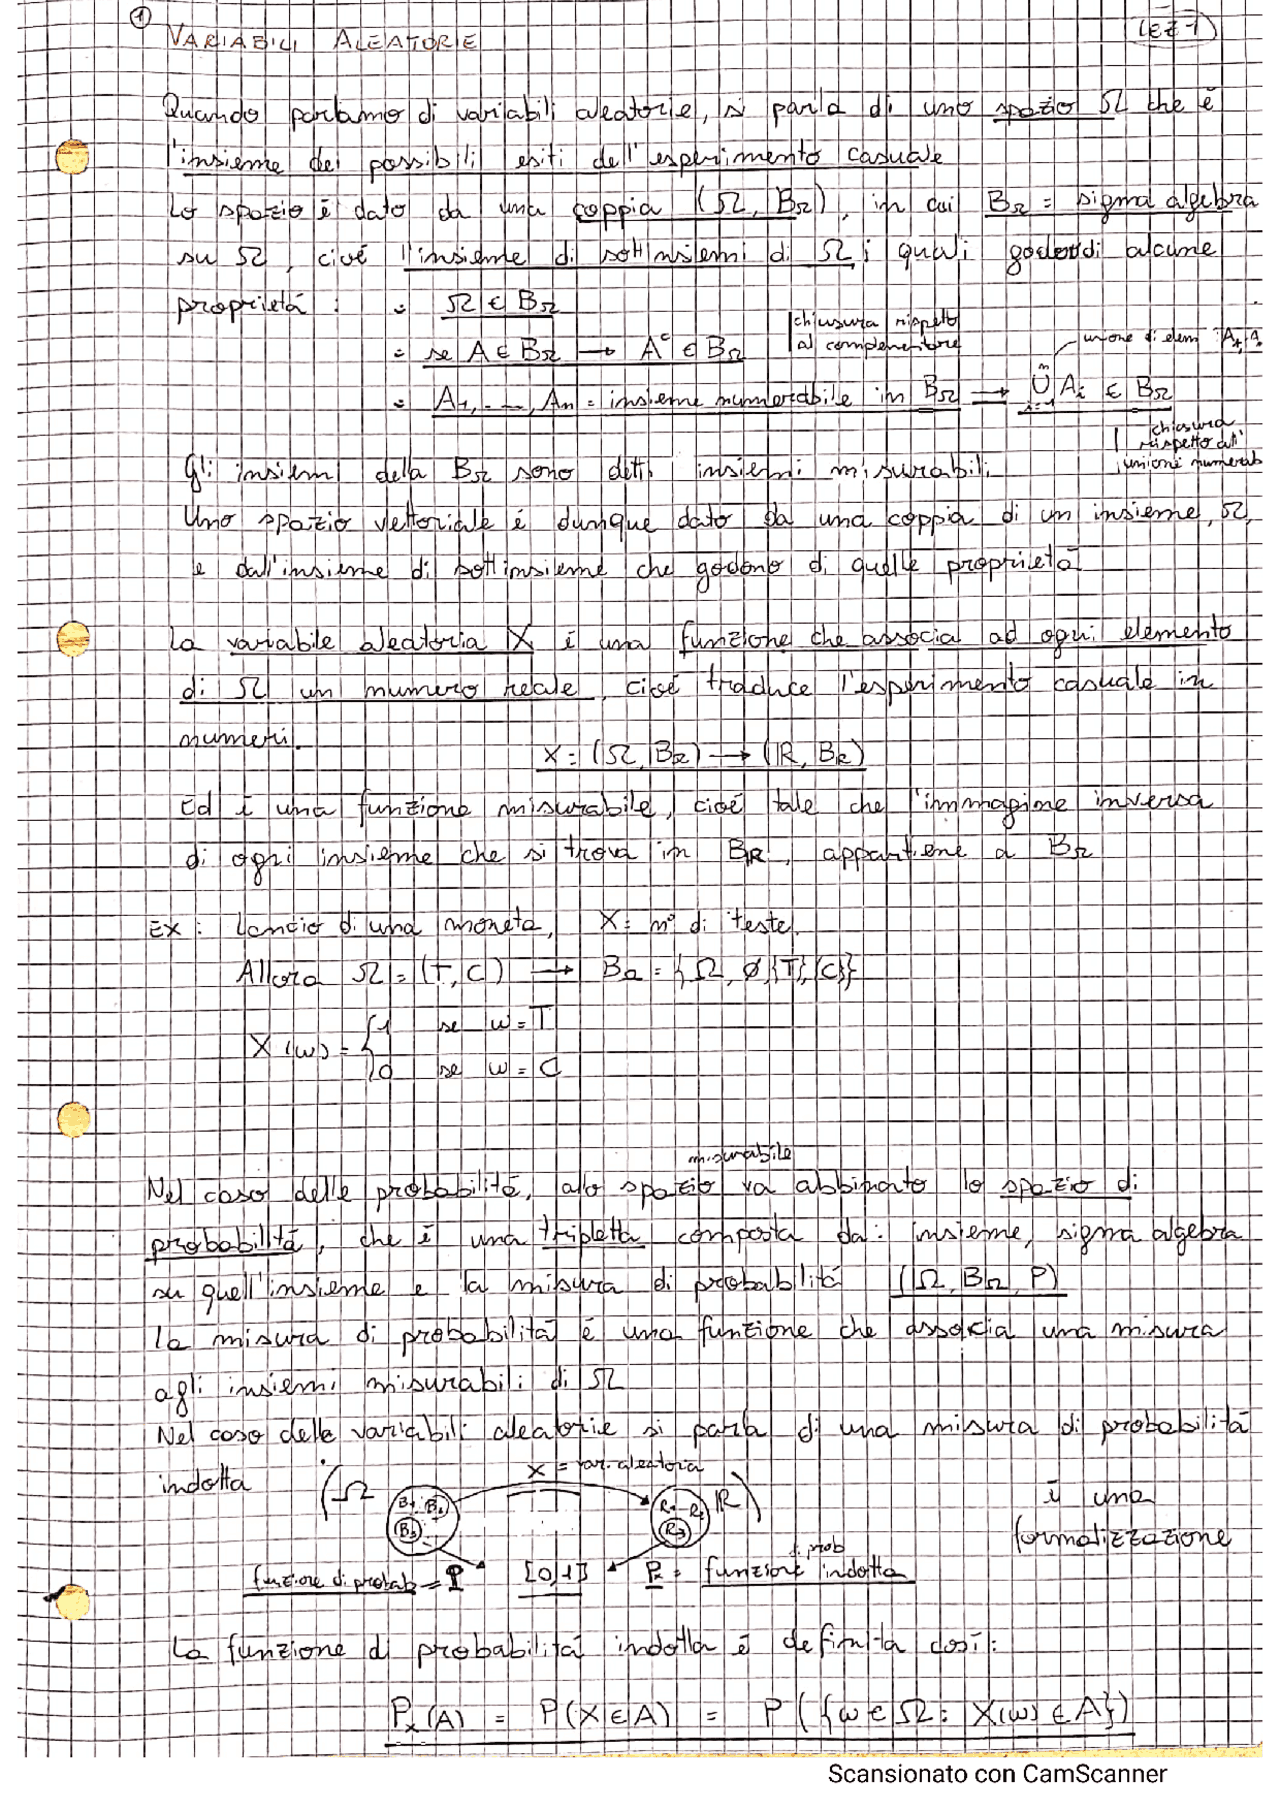 ① VARIABILI ALEATORIE
LEZ 1
Quando parliamo di variabili aleatorie, si parla di uno spazio Ω che è
l'insieme dei possibili esiti dell'esperimento casuale
Lo spazio è dato da una coppia (Ω, BΩ), in cui BΩ = sigma algebra
su Ω, cioè l'insieme di sottinsiemi di Ω i quali godono di alcune
proprietà :
= Ω ∈ BΩ
= se A ∈ BΩ → Aᶜ ∈ BΩ
chiusura rispetto
al complementare
unione di elem A₁, A
= A₁, ..., An = insieme numerabile in BΩ → ⋃ⁿᵢ₌₁ Aᵢ ∈ BΩ
chiusura
rispetto all'
unione numerab
Gli insiemi della BΩ sono detti insiemi misurabili
Uno spazio vettoriale è dunque dato da una coppia di un insieme, Ω,
e dall'insieme di sottinsieme che godono di quelle proprietà
La variabile aleatoria X è una funzione che associa ad ogni elemento
di Ω un numero reale, cioè traduce l'esperimento casuale in
numeri.
X = (Ω, BΩ) → (R, BR)
Ed è una funzione misurabile, cioè tale che l'immagine inversa
di ogni insieme che si trova in BR, appartiene a BΩ
EX : Lancio di una moneta, X = n° di teste.
Allora Ω = (T, C) → BΩ = {Ω, ∅, {T}, {C}}
X(w) = { 1 se w = T
0 se w = C
misurabile
Nel caso delle probabilità, allo spazio va abbinato lo spazio di
probabilità, che è una tripletta composta da: insieme, sigma algebra
su quell'insieme e la misura di probabilità (Ω, BΩ, P)
La misura di probabilità è una funzione che associa una misura
agli insiemi misurabili di Ω
Nel caso delle variabili aleatorie si parla di una misura di probabilità
indotta
X = var. aleatoria
(Ω B₁ B₂ B₃ R₁ R₂ R₃ R)
è una
formalizzazione
di prob
funzione di probab = P [0,1] Px = funzione indotta
La funzione di probabilità indotta è definita così:
Px(A) = P(X ∈ A) = P({w ∈ Ω : X(w) ∈ A})
Scansionato con CamScanner